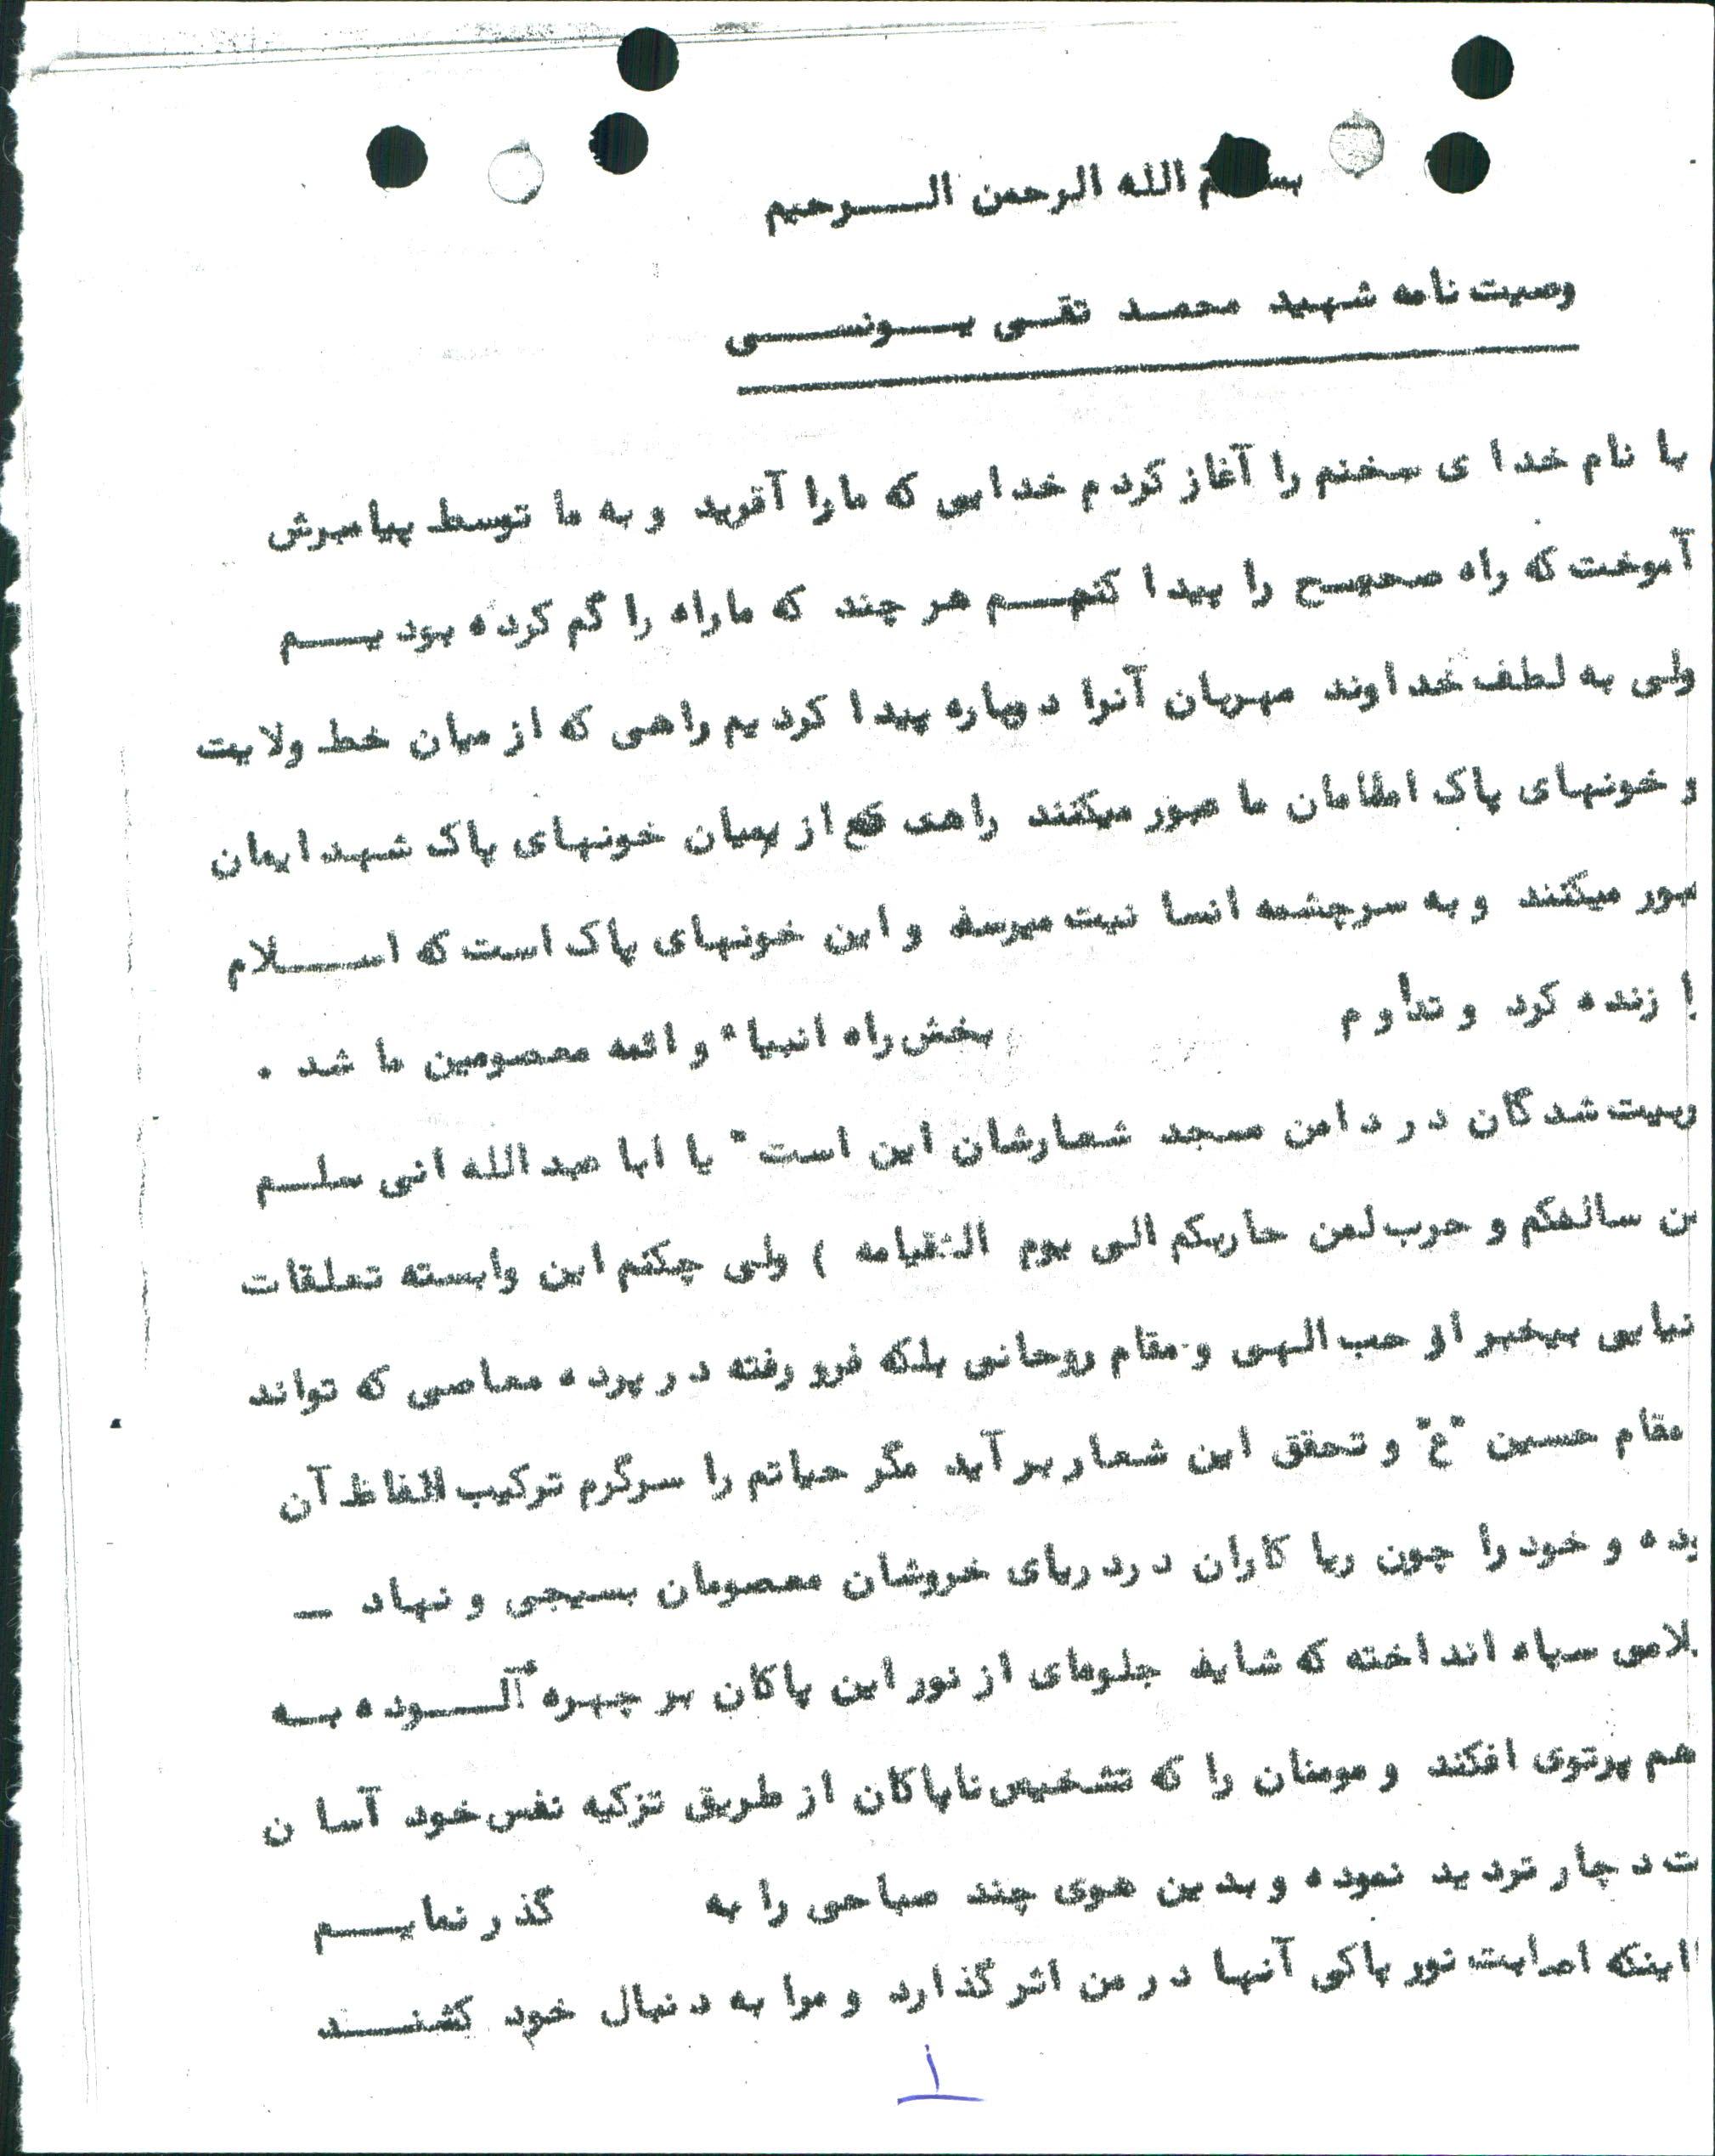 بسم الله الرحمن الرحیم
وصیت نامه شهید محمد تقی یونسی
با نام خدا ی سخنم را آغاز کردم خدایی که مارا آفرید و به ما توسط پیامبرش
آموخت که راه صحیح را پیدا کنیم هر چند که ماراه را گم کرده بودیم
ولی به لطف خداوند مهربان آنرا دوباره پیدا کردیم راهی که از میان خط ولایت
و خونهای پاک امامان ما عبور میکنند راهی که از میان خونهای پاک شهدایمان
بور میکنند و به سرچشمه انسا نیت میرسد و این خونهای پاک است که اسلام
ا زنده کرد و تداوم بخش راه انبیاء و ائمه معصومین ما شد .
ربیت شدگان در دامن مسجد شعارشان این است " یا ابا عبدالله انی سلم
من سالمکم و حرب لمن حاربکم الی یوم القیامه ) ولی چکنم این وابسته تعلقات
نیایی بیخبر از حب الهی و مقام روحانی بلکه فرو رفته در پرده معاصی که تواند
مقام حسین "ع" و تحقق این شعار بر آید مگر حیاتم را سرگرم ترکیب الفاظ آن
یده و خود را چون ریا کاران در دریای خروشان معصومان بسیجی و نهاد -
لامی سپاه انداخته که شاید جلوهای از نور این پاکان بر چهره آلوده به
هم پرتوی افکند و مومنان را که تشخیص ناپاکان از طریق تزکیه نفس خود آسا ن
ت دچار تردید نموده و بدین هوی چند صباحی را به گذر نمایم
اینکه اصابت نور پاکی آنها در من اثر گذارد و مرا به دنبال خود کشند
۱